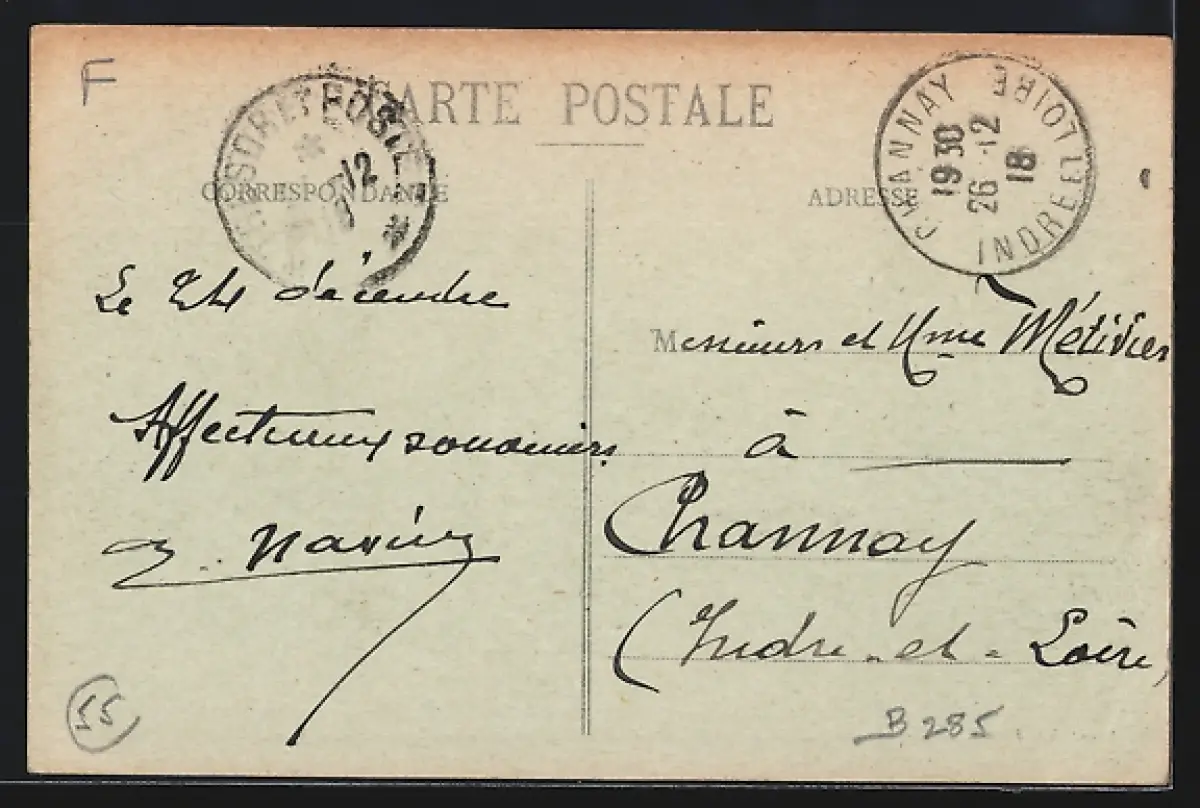 F
CARTE POSTALE
CORRESPONDANCE
TRÉSOR ET POSTES
12
ADRESSE
CHANNAY
INDRE ET LOIRE
19 30
26 -12
18
Le 24 décembre
Affectueux souvenirs
Messieurs et Mme Métivier
à
Channay
(Indre-et-Loire)
55
B 285